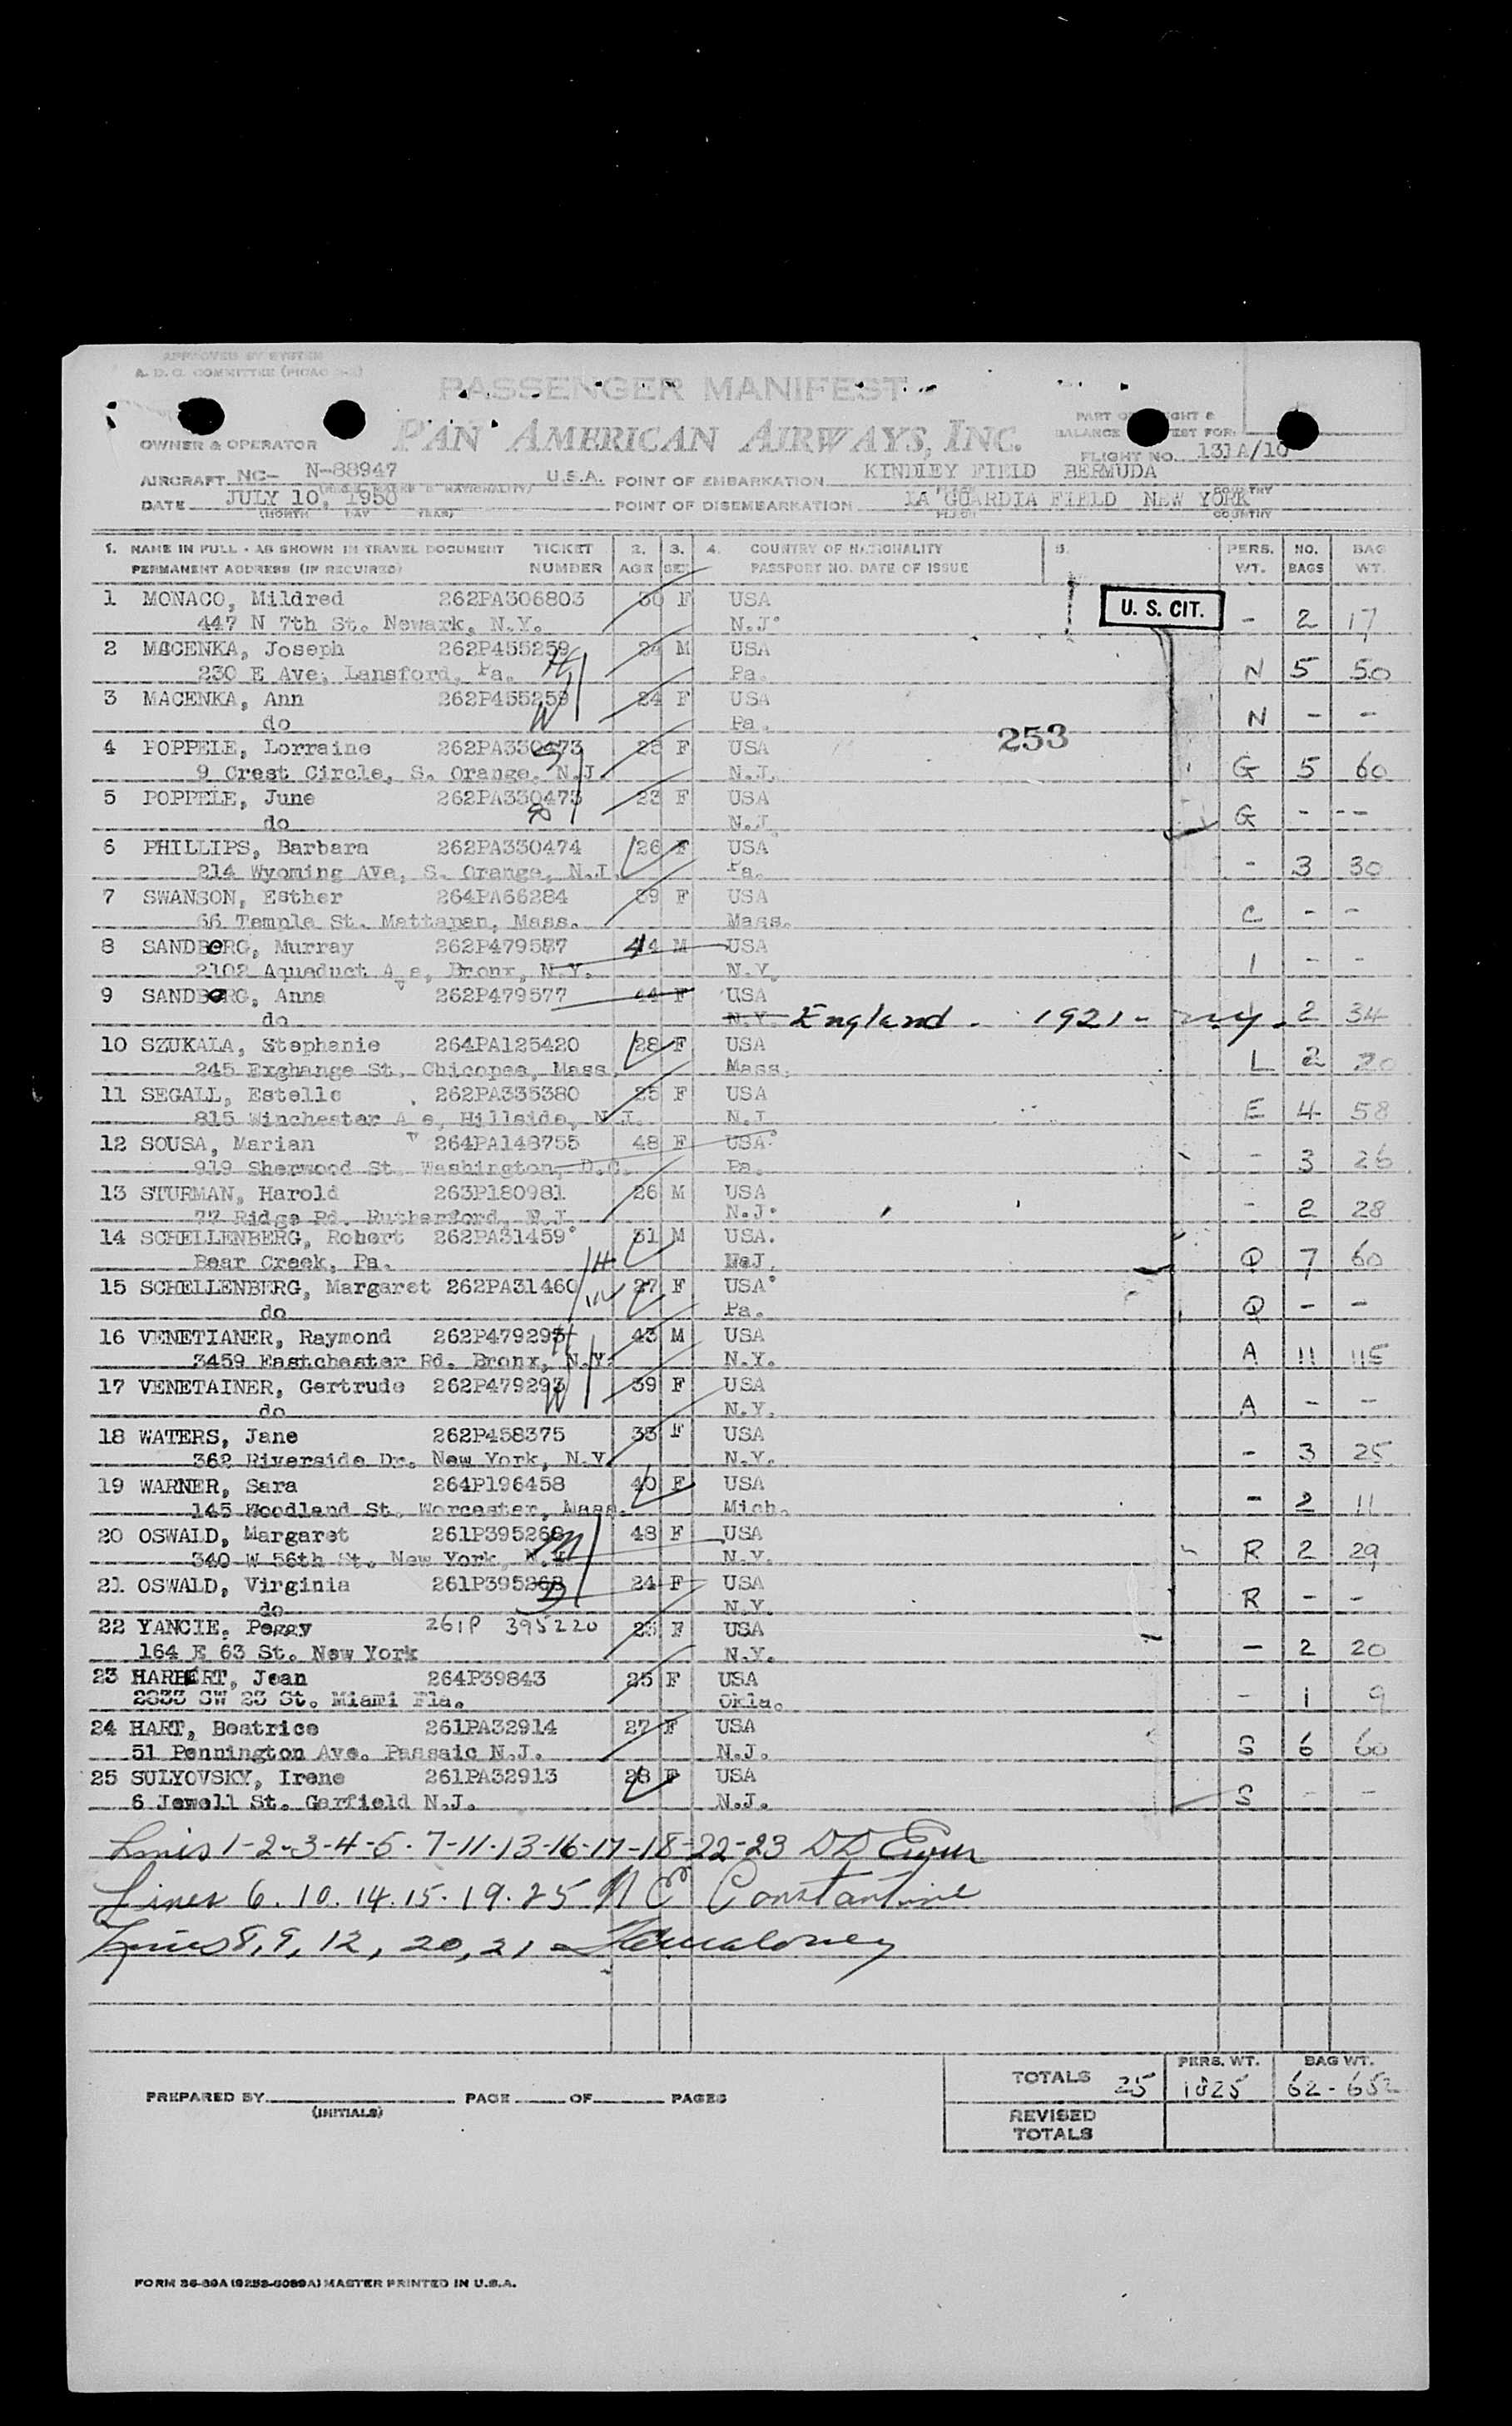 APPROVED BY SYSTEM
A. D. C. COMMITTEE (PICAO
PASSENGER MANIFEST
PAN AMERICAN AIRWAYS, INC.
OWNER & OPERATOR
BALANCE
FLIGHT NO. 131A/10
AIRCRAFT NC- N-88947 U.S.A. POINT OF EMBARKATION KINDLEY FIELD BERMUDA
DATE JULY 10, 1950 POINT OF DISEMBARKATION LA GUARDIA FIELD NEW YORK
(MONTH DAY YEAR) COUNTRY
1. NAME IN FULL - AS SHOWN IN TRAVEL DOCUMENT TICKET 2. 3. 4. COUNTRY OF NATIONALITY 5. PERS. NO. BAG
PERMANENT ADDRESS (IF REQUIRED) NUMBER AGE SEX PASSPORT NO. DATE OF ISSUE WT. BAGS WT.
1 MONACO, Mildred 262PA306803 30 F USA U. S. CIT.
447 N 7th St. Newark, N.Y. N.J. - 2 17
2 MACENKA, Joseph 262P455259 24 M USA
230 E Ave, Lansford, Pa. H Pa. N 5 50
3 MACENKA, Ann 262P455259 24 F USA
do W Pa. N - -
253
4 POPPELE, Lorraine 262PA330473 25 F USA
9 Crest Circle, S. Orange, N.J. S N.J. G 5 60
5 POPPELE, June 262PA330473 23 F USA
do N.J. G - --
6 PHILLIPS, Barbara 262PA330474 26 F USA
214 Wyoming AVe, S. Orange, N.J. Pa. - 3 30
7 SWANSON, Esther 264PA66284 39 F USA
66 Temple St. Mattapan, Mass. Mass. C - -
8 SANDBeRG, Murray 262P479577 44 M USA
2102 Aqueduct Ave, Bronx, N.Y. N.Y. I - -
9 SANDBeRG, Anna 262P479577 44 F USA
do N.Y. England - 1921 - ny. I 2 34
10 SZUKALA, Stephanie 264PA125420 28 F USA
245 Exghange St. Chicopee, Mass. Mass. L 2 20
11 SEGALL, Estelle 262PA335380 25 F USA
815 Winchester Ave, Hillside, N.J. N.J. E 4 58
12 SOUSA, Marian 264PA148755 48 F USA
919 Sherwood St. Washington, D.C. Pa. - 3 26
13 STURMAN, Harold 263P180981 26 M USA
77 Ridge Rd. Rutherford, N.J. N.J. - 2 28
14 SCHELLENBERG, Robert 262PA31459 31 M USA.
Bear Creek, Pa. H N.J. Q 7 60
15 SCHELLENBERG, Margaret 262PA31460 27 F USA
do W Pa. Q - -
16 VENETIANER, Raymond 262P479293 43 M USA
3459 Eastchester Rd. Bronx, N.Y. H N.Y. A 11 115
17 VENETAINER, Gertrude 262P479293 39 F USA
do W N.Y. A - -
18 WATERS, Jane 262P458375 33 F USA
362 Riverside Dr. New York, N.Y. N.Y. - 3 25
19 WARNER, Sara 264P196458 40 F USA
145 Woodland St. Worcester, Mass. Mich. - 2 11
20 OSWALD, Margaret 261P395268 48 F USA
340 W 56th St. New York, N.Y. M N.Y. R 2 29
21 OSWALD, Virginia 261P395268 24 F USA
do D N.Y. R - -
22 YANCIE, Peggy 261P 395220 25 F USA
164 E 63 St. New York N.Y. - 2 20
23 HARBERT, Jean 264P39843 25 F USA
2833 SW 23 St. Miami Fla. Okla. - 1 9
24 HART, Beatrice 261PA32914 27 F USA
51 Pennington Ave. Passaic N.J. N.J. S 6 60
25 SULYOVSKY, Irene 261PA32913 28 F USA
6 Jewell St. Garfield N.J. N.J. S - -
Lines 1-2-3-4-5-7-11-13-16-17-18-22-23 DD
Lines 6.10.14.15.19.25 N C Constantine
Lines 8, 9, 12, 20, 21
TOTALS 25 PERS. WT. 1025 BAG WT. 62-652
PREPARED BY PAGE OF PAGES
(INITIALS)
REVISED
TOTALS
FORM 36-39A (9253-6089A) MASTER PRINTED IN U.S.A.